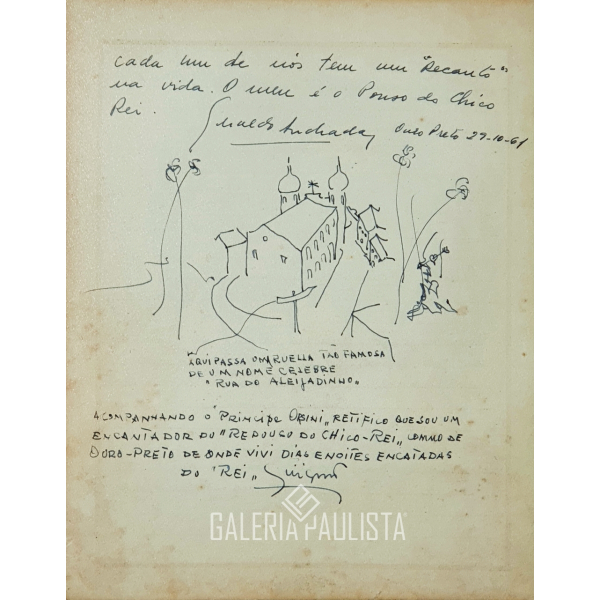 cada um de nós tem um "Recanto"
na vida. O meu é o Pouso do Chico
Rei.
Andrada, Ouro Preto 29-10-61
AQUI PASSA UMA RUELLA TÃO FAMOSA
DE UM NOME CELEBRE
"RUA DO ALEIJADINHO"
ACOMPANHANDO O "PRINCIPE OBINI", RETIFICO QUE SOU UM
ENCANTADOR DO "REPOUSO DO CHICO-REI", COMO DE
OURO-PRETO DE ONDE VIVI DIAS E NOITES ENCATADAS
DO "REI" Guignard
GALERIA PAULISTA